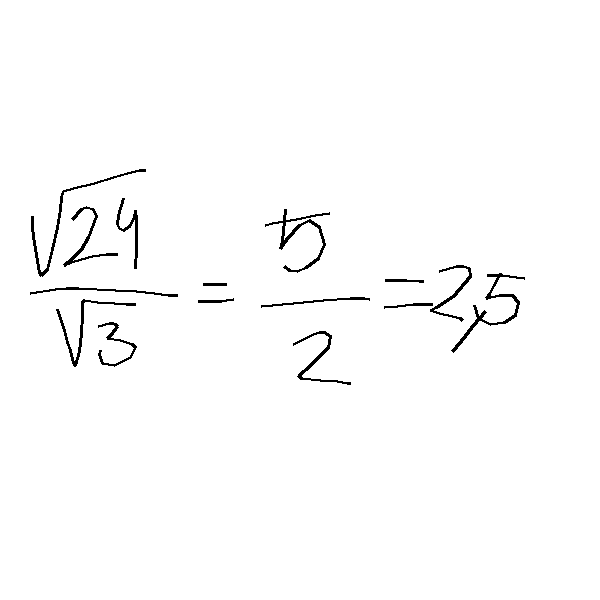 √24/√3 = 5/2 = 2,5